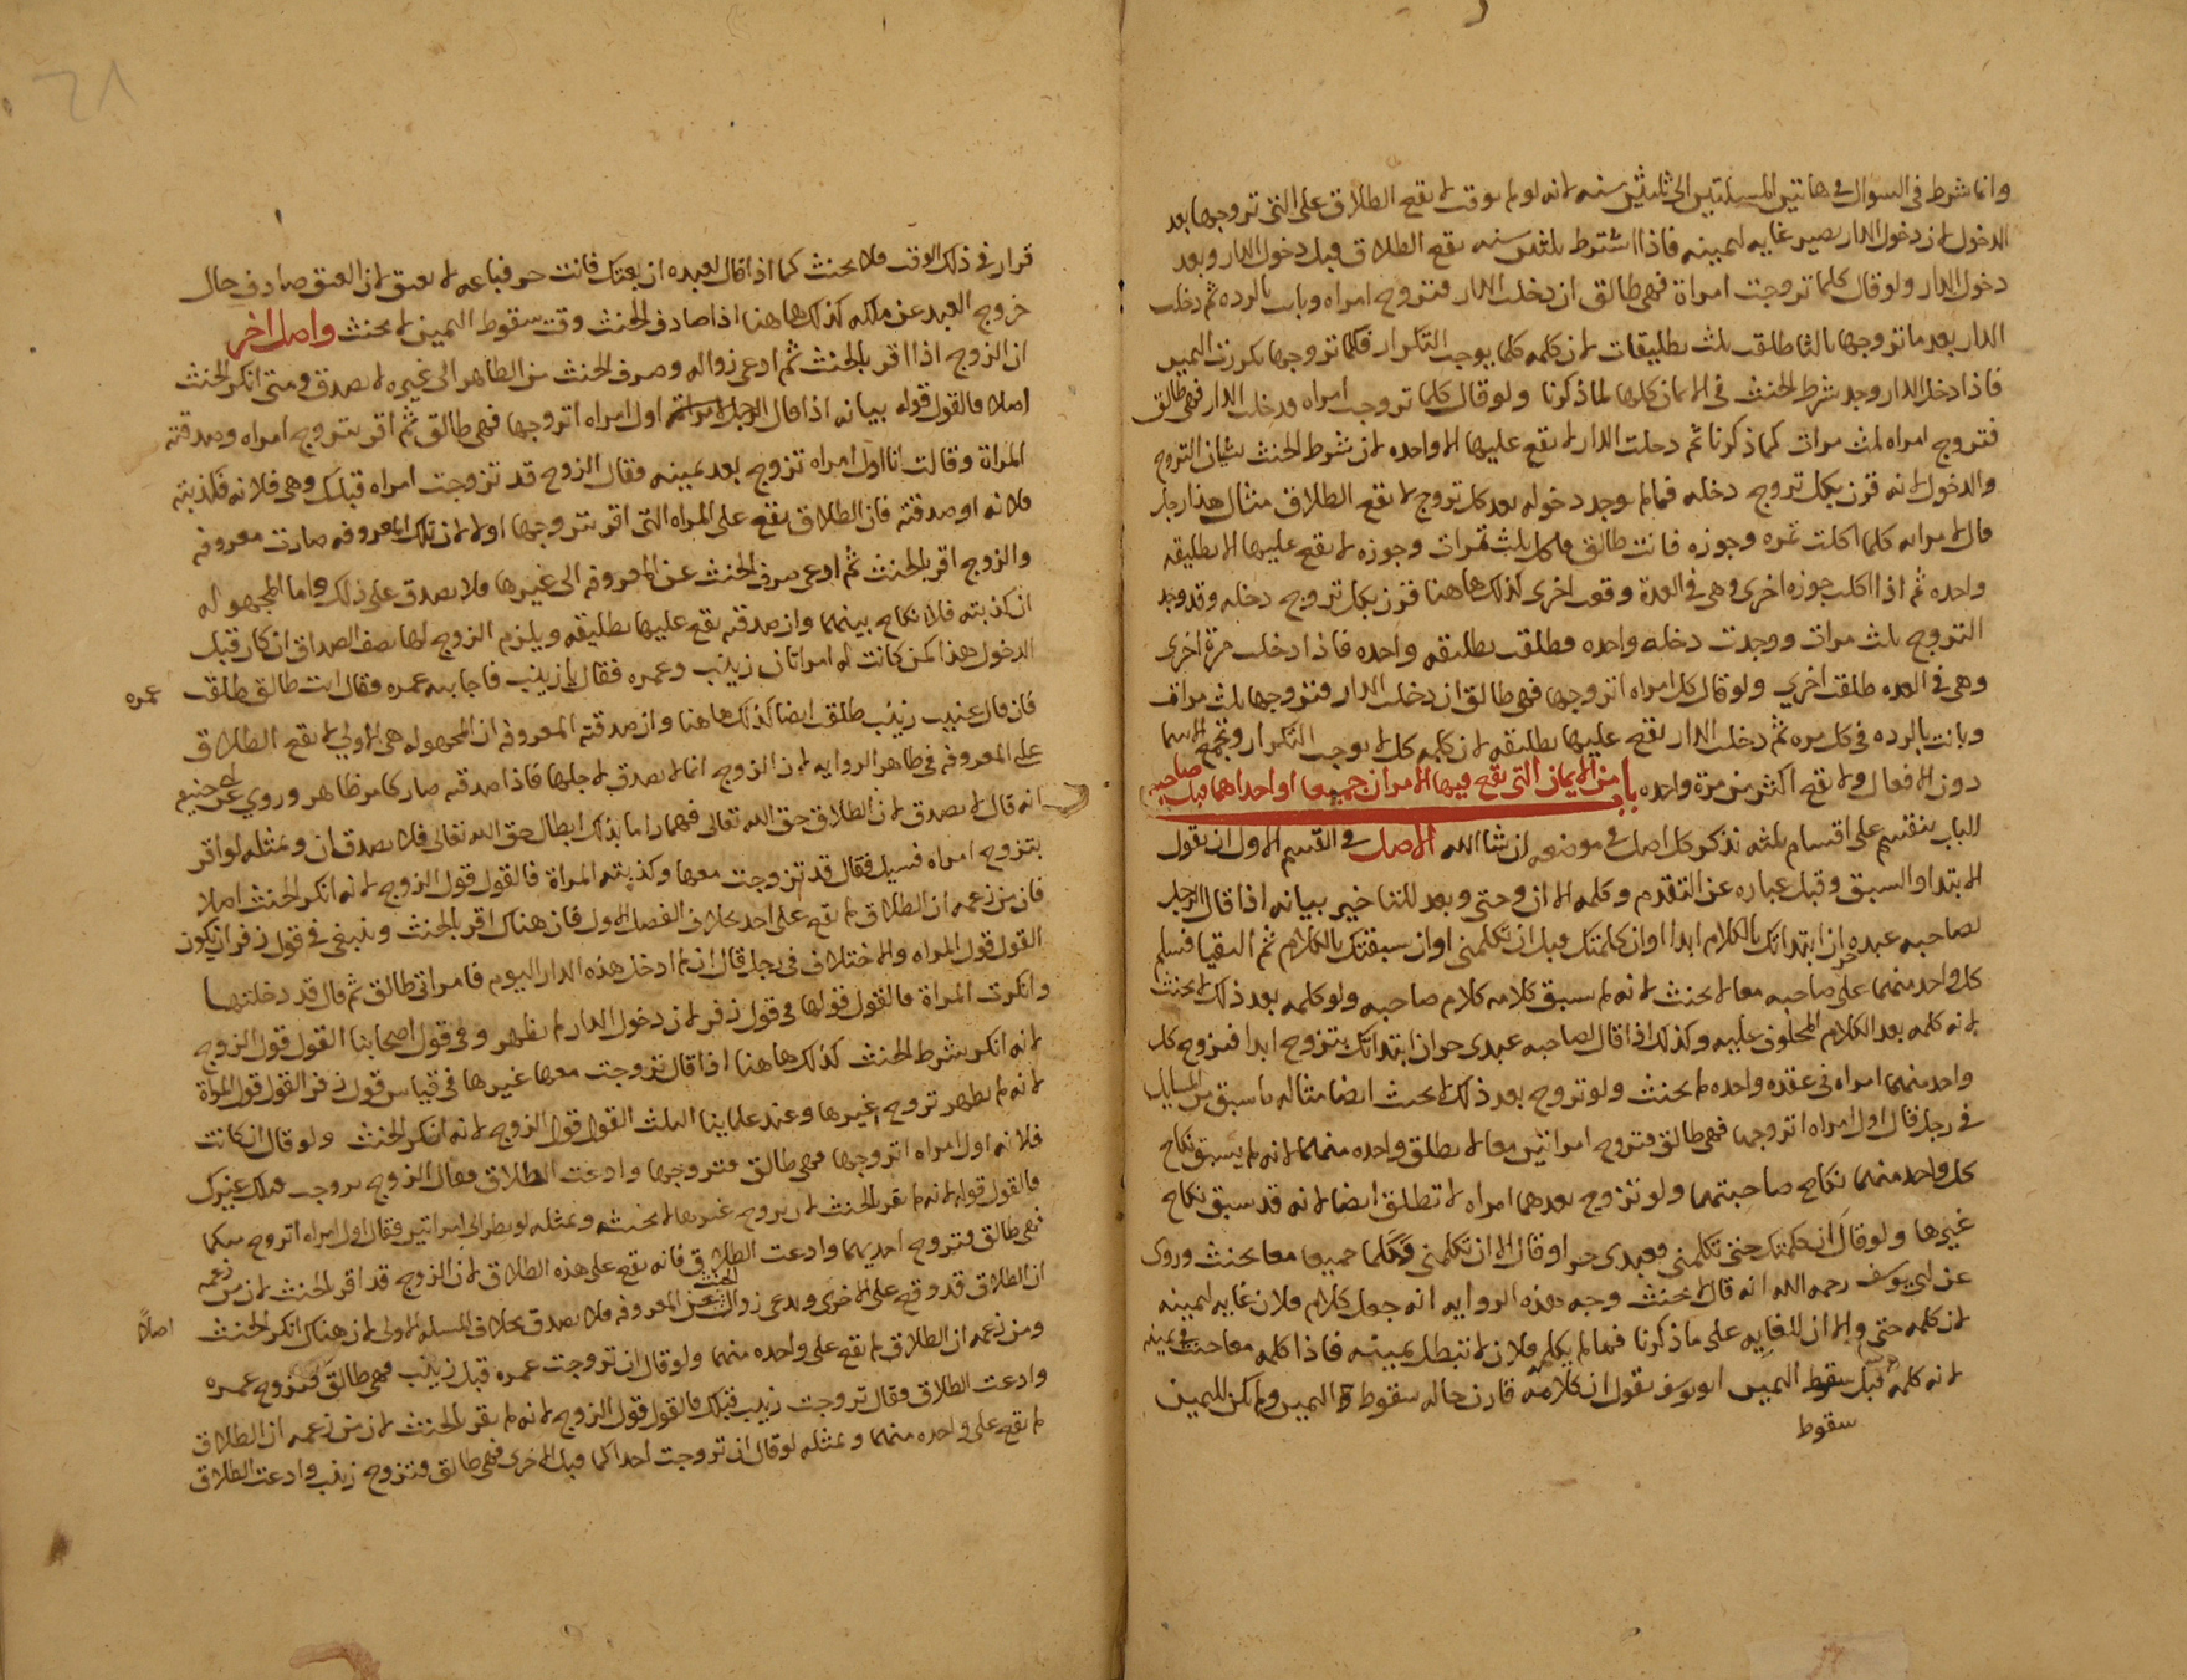 وانما شرط في السوال في هاتين المسيلتين الى ثلثين سنه لانه لو لم يوقت لا يقع الطلاق على التي تزوجها بعد
الدخول لان دخول الدار يصير غايه ليمينه فاذا اشترط ثلثين سنه يقع الطلاق قبل دخول الدار وبعد
دخول الدار ولو قال كلما تزوجت امراة فهي طالق ان دخلت الدار فتزوج امراه وبانت بالرده ثم دخلت
الدار بعد ما تزوجها ثالثا طلقت ثلث تطليقات لان كلمه كلما يوجب التكرار فكلما تزوجها تكررت اليمين
فاذا دخل الدار وجد شرط الحنث في الايمان كلها لما ذكرنا ولو قال كلما تزوجت امراه ودخلت الدار فهي طالق
فتزوج امراه ثلث مرات كما ذكرنا ثم دخلت الدار لا يقع عليها الا واحده لان شرط الحنث شيان التزوج
والدخول لانه قرن بكل تزوج دخله فما لم يوجد دخوله بعد كل تزوج لا يقع الطلاق مثال هذا رجل
قال لامراته كلما اكلت تمره وجوزه فانت طالق فاكل ثلث تمرات وجوزه لا يقع عليها الا تطليقه
واحده ثم اذا اكلت جوزه اخرى وهي في العدة وقعت اخرى كذلك هاهنا قرن بكل تزوج دخله وقد وجد
التزوج ثلث مرات ووجدت دخله واحده فطلقت تطليقه واحده فاذا دخلت مرة اخرى
وهي في العده طلقت اخري ولو قال كل امراه اتزوجها فهي طالق ان دخلت الدار فتزوجها ثلث مرات
وبانت بالرده في كل مره ثم دخلت الدار يقع عليها تطليقه لان كلمه كل لا يوجب التكرار وتجمع الاسما
دون الافعال ولا يقع اكثر من مرة واحده باب من الايمان التي يقع فيها الامران جميعا او احداهما قبل صاحبه
الباب ينقسم على اقسام ثلثه نذكر كل اصل في موضعه ان شا الله الاصل في القسم الاول ان يقول
الابتدا والسبق وقبل عباره عن التقدم وكلمه الا ان وحتى وبعد للتاخير بيانه اذا قال الرجل
لصاحبه عبده حر ان ابتداتك بالكلام ابدا او ان كلمتك قبل ان تكلمني او ان سبقتك بالكلام ثم التقيا فسلم
كل واحد منهما على صاحبه معا لا يحنث لانه لم يسبق كلامه كلام صاحبه ولو كلمه بعد ذلك لا يحنث
لانه كلمه بعد الكلام المحلوف عليه وكذلك اذا قال لصاحبه عبدي حر ان ابتداتك بتزوج ابدا فتزوج كل
واحد منهما امراه في عقده واحده لم يحنث ولو تزوج بعد ذلك لا يحنث ايضا مثاله ما سبق من المسايل
في رجل قال اول امراه اتزوجها فهي طالق فتزوج امراتين معا لا يطلق واحده منهما لانه لم يسبق نكاح
كل واحد منهما نكاح صاحبتهما ولو تزوج بعدهما امراه لا تطلق ايضا لانه قد سبق نكاح
غيرها ولو قال ان كلمتك حتى تكلمني فعبدى حر او قال الا ان تكلمني فتكلما جميعا معا يحنث وروى
عن ابي يوسف رحمه الله انه قال لا يحنث وجه هذه الروايه انه جعل كلام فلان غايه ليمينه
لان كلمه حتى والا ان للغايه على ما ذكرنا فما لم يكلمه فلان لا تبطل يمينه فاذا كلمه معا حنث في يمينه
لانه كلمه قبل سقط اليمين ابو يوسف يقول ان كلامه قارن حاله سقوط اليمين ولم يكن لليمين
سقوط
قرار في ذلك الوقت فلا يحنث كما اذا قال لعبده ان بعتك فانت حر فباعه لا يعتق لان العتق صادف حال
خروج العبد عن ملكه كذلك هاهنا اذا صادف الحنث وقت سقوط اليمين لا يحنث واصل اخر
ان الزوج اذا اقر بالحنث ثم ادعى زواله وصرف الحنث من الظاهر الى غيره لا يصدق ومتى انكر الحنث
اصلا فالقول قوله بيانه اذا قال الرجل لامراته اول امراه اتزوجها فهي طالق ثم اقر بتزوج امراه وصدقته
المراة وقالت انا اول امراه تزوج بعد يمينه فقال الزوج قد تزوجت امراه قبلك وهي فلانه فكذبته
فلانه او صدقته فان الطلاق يقع على المراه التي اقر بتزوجها اولا لان تلك المعروفه صارت معروفه
والزوج اقر بالحنث ثم ادعى صرف الحنث عن المعروفه الى غيرها فلا يصدق على ذلك واما المجهوله
ان كذبته فلا نكاح بينهما وان صدقته يقع عليها تطليقه ويلزم الزوج لها نصف الصداق ان كان قبل
الدخول هذا كمن كانت له امراتان زينب وعمره فقال يا زينب فاجابته عمره فقال انت طالق طلقت عمره
فان قال عنيت زينب طلقت ايضا كذلك هاهنا وان صدقته المعروفه ان المجهوله هي الاولي لا يقع الطلاق
على المعروفه في ظاهر الروايه لان الزوج انما لا يصدق لاجلها فاذا صدقته صار كامر ظاهر وروي عن ابي حنيفه
انه قال لا يصدق لان الطلاق حق الله تعالى فهما راما بذلك ابطال حق الله تعالى فلا يصدقان ومثله لو اقر
بتزوج امراه فسيل فقال قد تزوجت معها وكذبته المراة فالقول قول الزوج لانه انكر الحنث اصلا
فان من زعمه ان الطلاق لم يقع على احد بخلاف الفصل الاول فان هناك اقر بالحنث وينبغي في قول زفر ان يكون
القول قول المراه والاختلاف في رجل قال ان لم ادخل هذه الدار اليوم فامراتي طالق ثم قال قد دخلتها
وانكرت المراة فالقول قولها في قول زفر لان دخول الدار لم يظهر وفي قول اصحابنا القول قول الزوج
لانه انكر شرط الحنث كذلك هاهنا اذا قال تزوجت معها غيرها في قياس قول زفر القول قول المراة
لانه لم يظهر تزوج غيرها وعند علماينا الثلث القول قول الزوج لانه انكر الحنث ولو قال ان كانت
فلانه اول امراه اتزوجها فهي طالق فتزوجها وادعت الطلاق فقال الزوج تزوجت قبلك غيرك
فالقول قوله لانه لم يقر بالحنث لان تزوج غيرها لا يحنثه وبمثله لو نظر الى امراتين فقال اول امراه اتزوج منكما
فهي طالق فتزوج احديهما وادعت الطلاق فانه يقع على هذه الطلاق لان الزوج قد اقر بالحنث لان من زعمه
ان الطلاق قد وقع على الاخرى ويدعى زوال الحنث عن المعروفه فلا يصدق بخلاف المسله الاولى لان هناك انكر الحنث اصلاً
ومن زعمه ان الطلاق لم يقع على واحده منهما ولو قال ان تزوجت عمره قبل زينب فهي طالق فتزوج عمره
وادعت الطلاق فقال تزوجت زينب قبلك فالقول قول الزوج لانه لم يقر بالحنث لان من زعمه ان الطلاق
لم يقع على واحده منهما وبمثله لو قال ان تزوجت احداكما قبل الاخرى فهي طالق فتزوج زينب وادعت الطلاق